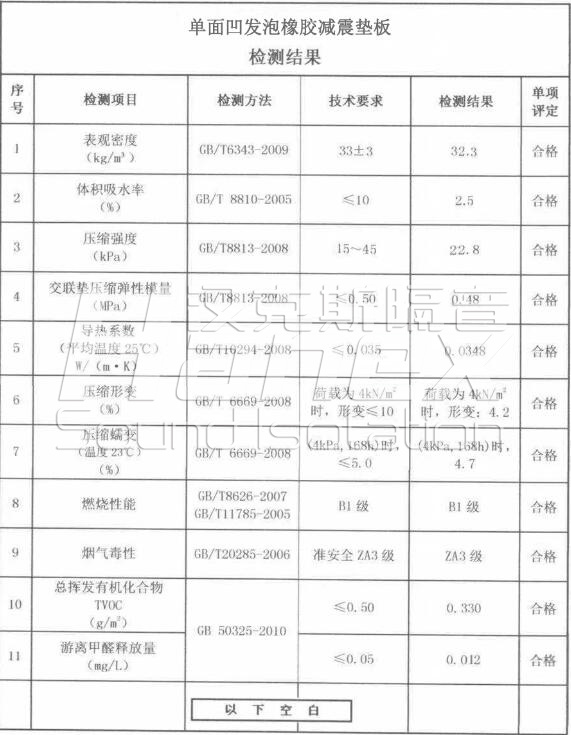 单面凹发泡橡胶减震垫板
检测结果
序号 检测项目 检测方法 技术要求 检测结果 单项评定
1 表观密度（kg/m³） GB/T6343-2009 33±3 32.3 合格
2 体积吸水率（%） GB/T 8810-2005 ≤10 2.5 合格
3 压缩强度（kPa） GB/T8813-2008 15～45 22.8 合格
4 交联垫压缩弹性模量（MPa） GB/T8813-2008 ≤0.50 0.48 合格
5 导热系数（平均温度25℃）W/（m·K） GB/T10294-2008 ≤0.035 0.0348 合格
6 压缩形变（%） GB/T 6669-2008 荷载为4kN/m²时，形变≤10 荷载为4kN/m²时，形变：4.2 合格
7 压缩蠕变（温度23℃）（%） GB/T 6669-2008 (4kPa,168h)时，≤5.0 (4kPa,168h)时，4.7 合格
8 燃烧性能 GB/T8626-2007 GB/T11785-2005 B1级 B1级 合格
9 烟气毒性 GB/T20285-2006 准安全ZA3级 ZA3级 合格
10 总挥发有机化合物TVOC（g/m²） GB 50325-2010 ≤0.50 0.330 合格
11 游离甲醛释放量（mg/L） ≤0.05 0.012 合格
以下空白
圣克斯隔音
Sound Isolation